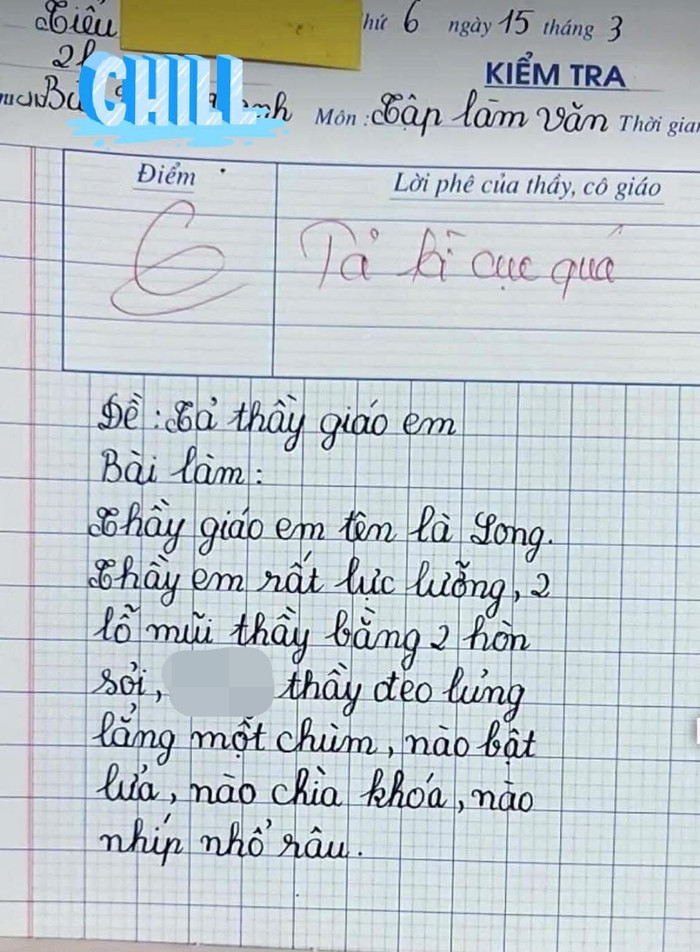 Tiểu
hứ 6 ngày 15 tháng 3
2
KIỂM TRA
CHILL
Môn : Tập làm văn Thời gian
Điểm
Lời phê của thầy, cô giáo
6
Tả kì cục quá
Đề : Tả thầy giáo em
Bài làm :
Thầy giáo em tên là Long.
Thầy em rất lực lưỡng, 2
lỗ mũi thầy bằng 2 hòn
sỏi, thầy đeo lủng
lẳng một chùm, nào bật
lửa, nào chìa khoá, nào
nhíp nhổ râu.